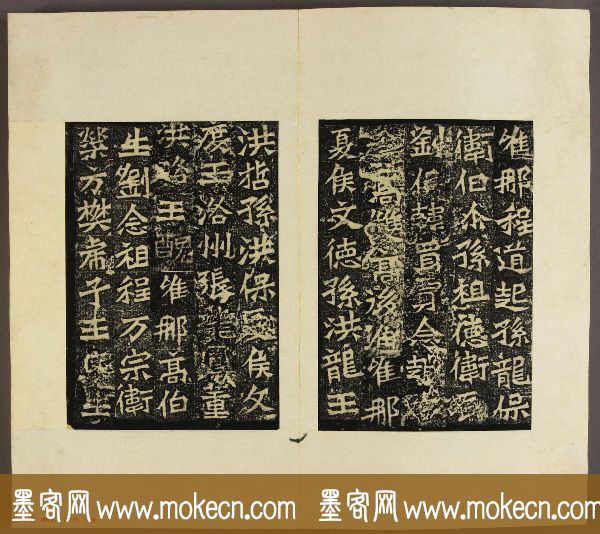 惟那程道起孫龍保
衛伯尒孫祖德衛
劉伯賈念
高高惟那
夏侯文德孫洪龍王
洪哲孫洪保侯文
度王洛州張龍鳳重
洪路王醜惟那高伯
生劉念祖程万宗衛
榮方樊虎子王生
墨客网 www.mokecn.com
墨客网 www.mokecn.com